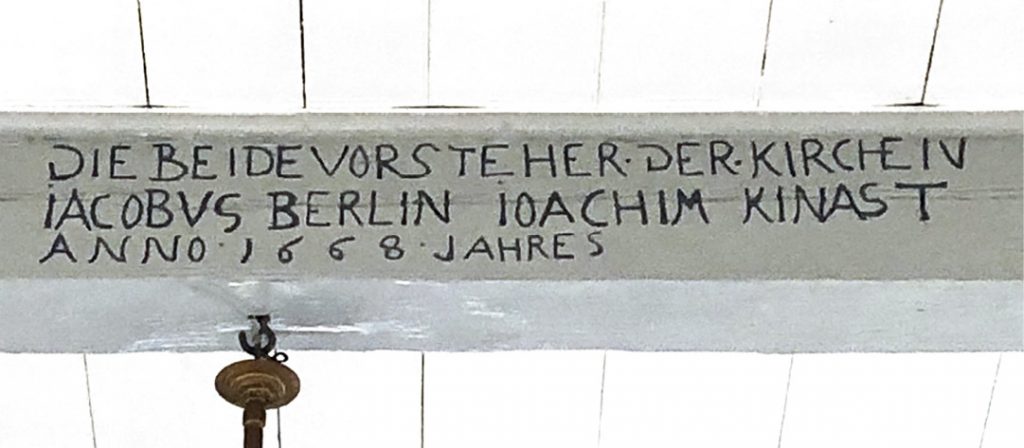 DIE BEIDE VORSTEHER·DER·KIRCHE IV
IACOBVS BERLIN IOACHIM KINAST
ANNO·1668·JAHRES